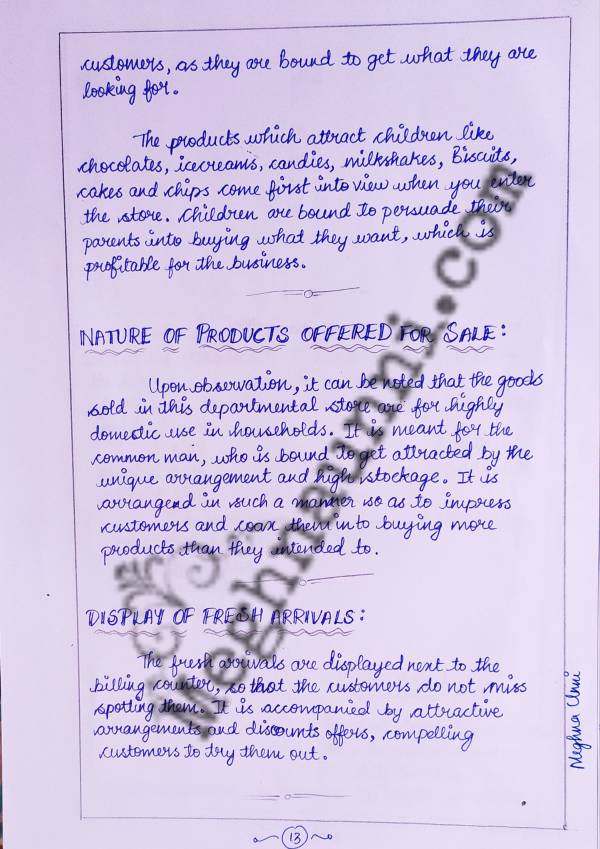 customers, as they are bound to get what they are
looking for.
The products which attract children like
chocolates, icecreams, candies, milkshakes, Biscuits,
cakes and chips come first into view when you enter
the store. Children are bound to persuade their
parents into buying what they want, which is
profitable for the business.
NATURE OF PRODUCTS OFFERED FOR SALE:
Upon observation, it can be noted that the goods
sold in this departmental store are for highly
domestic use in households. It is meant for the
common man, who is bound to get attracted by the
unique arrangement and high stockage. It is
arranged in such a manner so as to impress
customers and coax them into buying more
products than they intended to.
DISPLAY OF FRESH ARRIVALS:
The fresh arrivals are displayed next to the
billing counter, so that the customers do not miss
spotting them. It is accompanied by attractive
arrangements and discounts offers, compelling
customers to try them out.
13
Meghna Unni
Meghnaunni.com